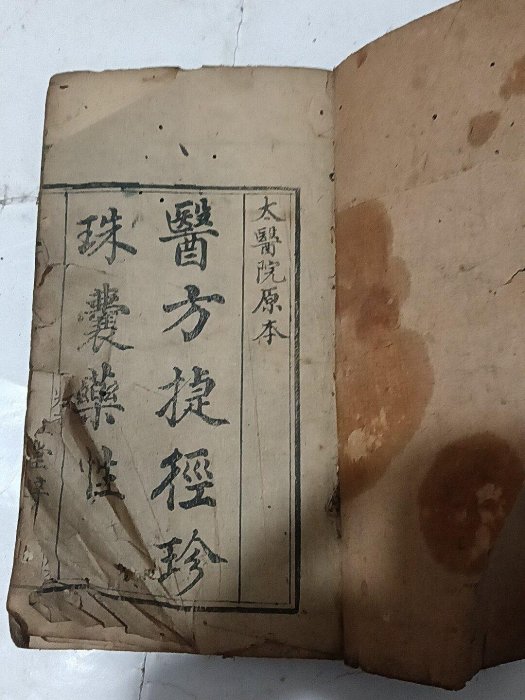 太醫院原本
醫方捷徑珍
珠囊藥性